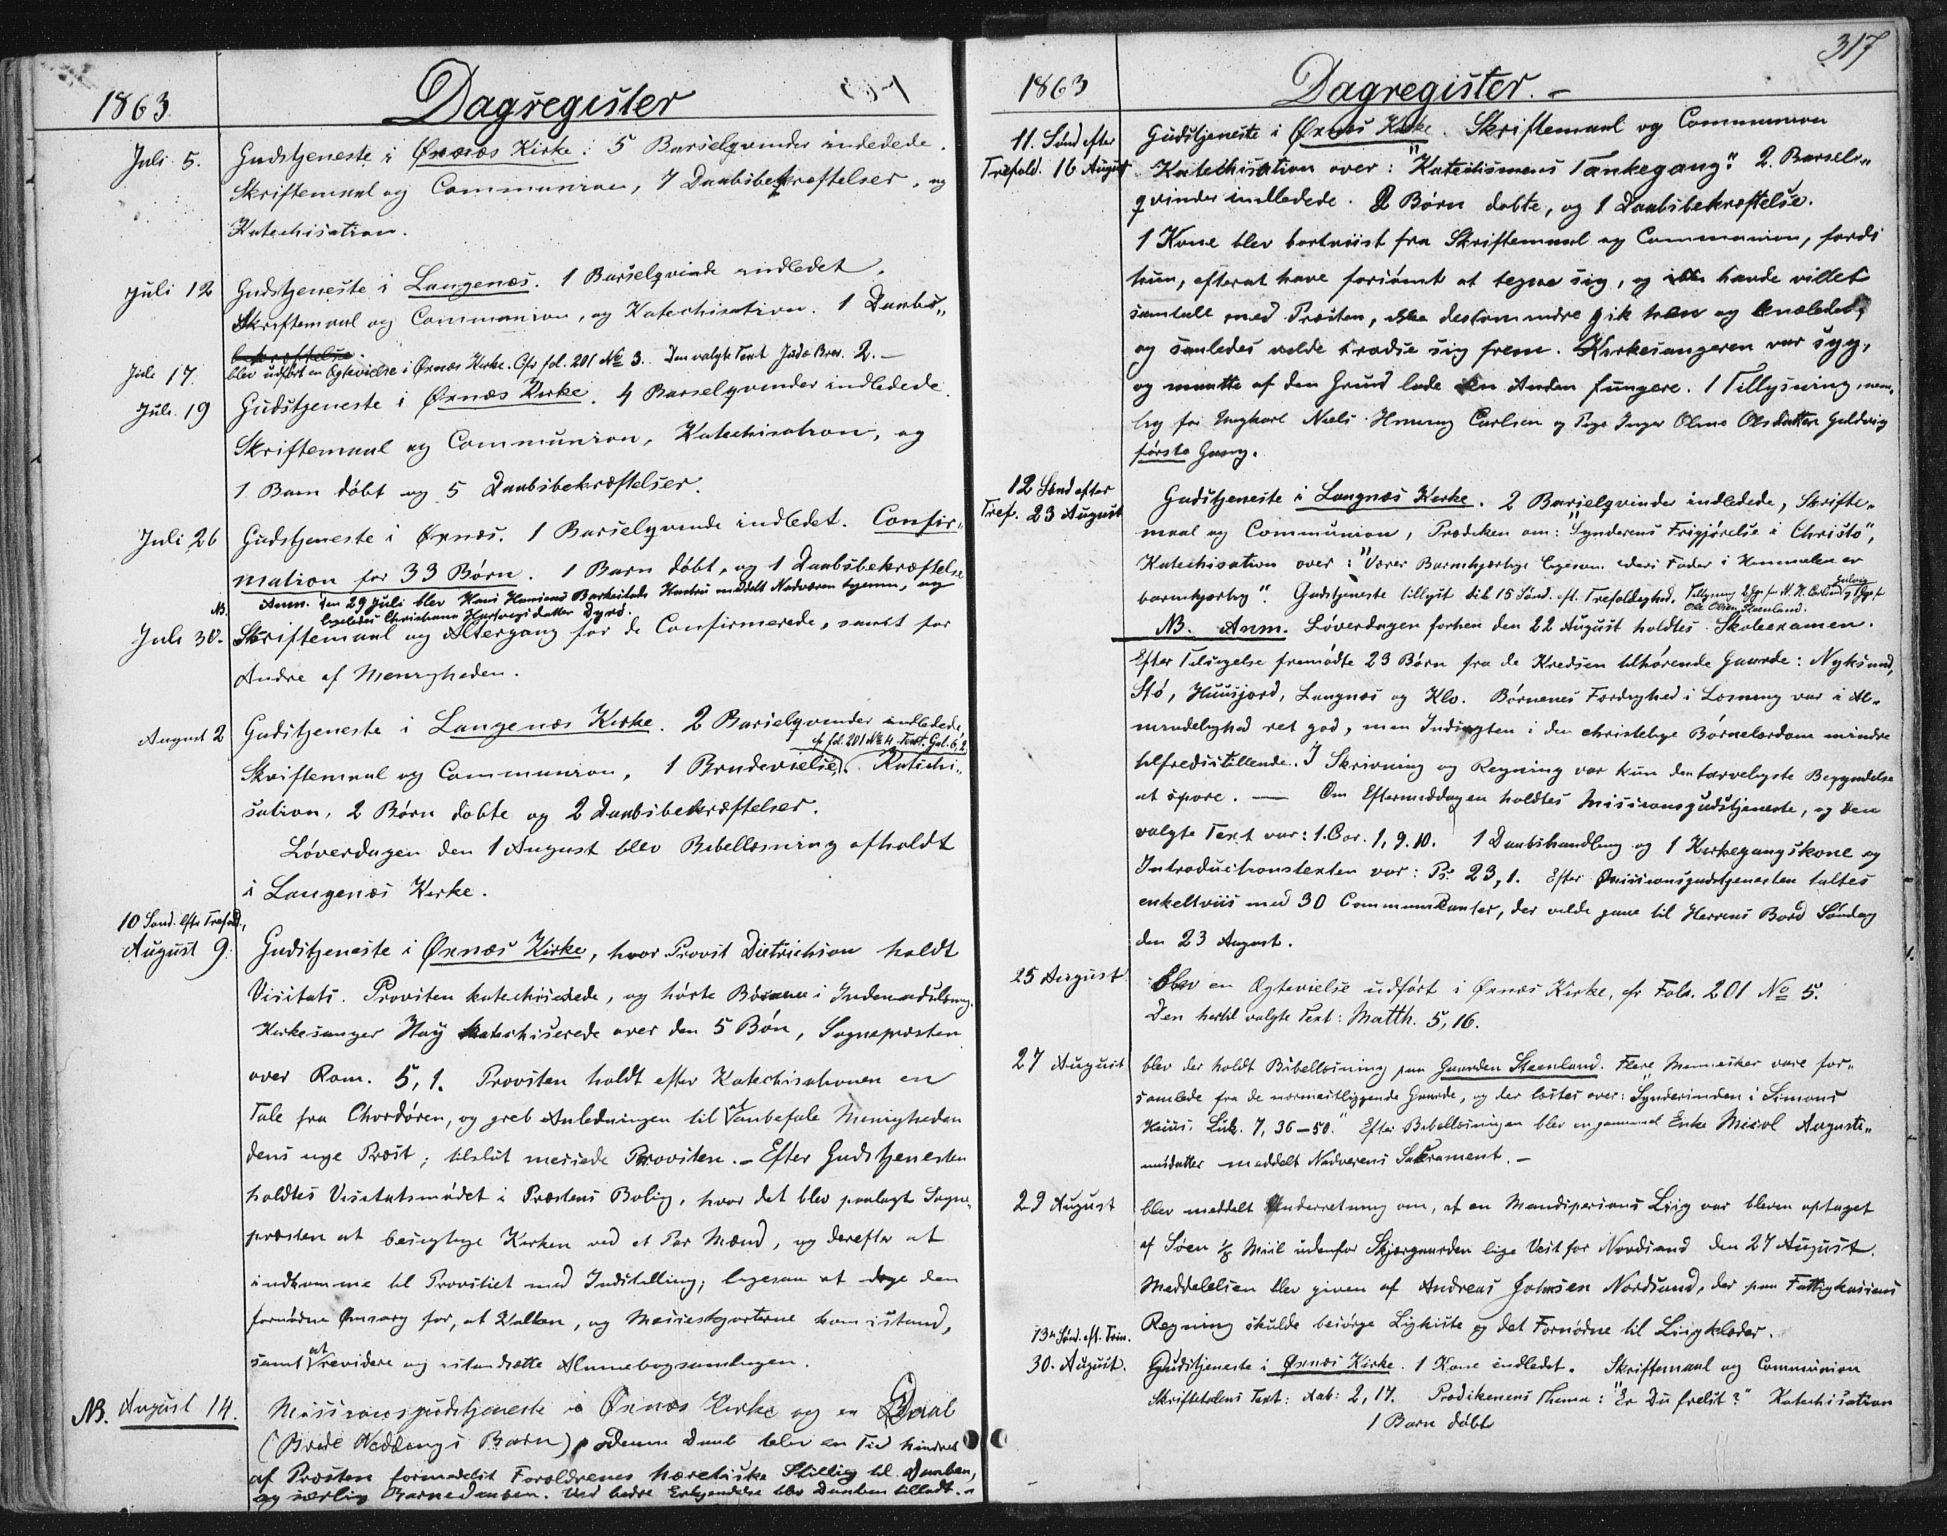 1863.
Dagregister
Juli 5.
Gudstjeneste i Øxnæs Kirke. 5 Barselqvinder indledede.
Skriftemaal og Communion, 7 Daabsbekræftelser, og
Katechisation.
Juli 12
Gudstjeneste i Langenæs. 1 Barselqvinde indledet.
Skriftemaal og Communion, og Katechisation. 1 Daabs-
bekræftelse.
Juli 17.
blev udført en Ægtevielse i Øxnæs Kirke. Cfr fol. 201 No 3. Den valgte Text Judæ Brev. 2. —
Juli 19
Gudstjeneste i Øxnæs Kirke. 4 Barselqvinder indledede.
Skriftemaal og Communion, Katechisation, og
1 Barn döbt og 5 Daabsbekræftelser.
Juli 26
Gudstjeneste i Øxnæs. 1 Barselqvinde indledet. Confir-
mation for 33 Børn. 1 Barn döbt, og 1 Daabsbekræftelse
NB. Anm. Den 29 Juli blev Hans Hansens Hustru meddelt Nadveren hjemme, og
ligeledes Christiane datter
Juli 30.
Skriftemaal og Altergang for de Confirmerede, samt for
Andre af Menigheden.
August 2
Gudstjeneste i Langenæs Kirke. 2 Barselqvinder indledede,
cfr fol. 201 No 4. Text: Gal. 6, 2
Skriftemaal og Communion, 1 Brudevielse. Katechi-
sation, 2 Børn döbte og 2 Daabsbekræftelser.
Løverdagen den 1 August blev Bibellæsning afholdt
i Langenæs Kirke.
10 Sønd. efter Trefold.
August 9.
Gudstjeneste i Øxnæs Kirke, hvor Provst Dietrichson holdt
Visitats. Provsten katechiserede, og hörte Börnene i Indenadslæsning.
Kirkesanger Høy katechiserede over den 5 Bön, Sognepræsten
over Rom. 5, 1. Provsten holdt efter Katechisationen en
Tale fra Chordøren, og greb Anledningen til at anbefale Menigheden
dens nye Præst; tilslut messede Provsten. — Efter Gudstjenesten
holdtes Visitatsmødet i Præstens Bolig, hvor det blev paalagt Sogne-
præsten at besigtige Kirken ved et Par Mænd, og derefter at
indkomme til Provstiet med Indstilling; ligesom at drage den
fornødne Omsorg for, at Kalken, og Messeskjorterne kom istand,
samt at revidere og istandsætte Almuebogsamlingen.
NB. August 14.
Missionsgudstjeneste i Øxnæs Kirke og en Daab
(Brede Barn). Denne Daab blev en Tid hindret
af Præsten formedelst Forældrenes hæretiske Stilling til Daaben,
og særlig Barnedaaben. Ved bedre Erkjendelse blev Daaben tilladt. —
317
1863
Dagregister. —
11. Sønd efter
Trefold. 16 August
Gudstjeneste i Øxnæs Kirke. Skriftemaal og Communion
Katechisation over: "Katechismens Tankegang". 2. Barsel-
qvinder indledede. 2 Børn døbte, og 1 Daabsbekræftelse.
1 Kone blev bortviist fra Skriftemaal og Communion, fordi
hun, efterat have forsömt at tegne sig, og ikke havde villet
samtale med Præsten, ikke destomindre gik hen og knælede,
og saaledes vilde trædse sig frem. Kirkesangeren var syg,
og maatte af den Grund lade en Anden fungere. 1 Tillysning, nem-
lig for Ungkarl Niels Henning Carlsen og Pige Inger Oline Olsdatter Guldvig
første Gang.
12 Sønd efter
Tref. 23 August
Gudstjeneste i Langnæs Kirke. 2 Barselqvinder indledede, Skrifte-
maal og Communion, Prædiken om: "Synderens Frigjørelse i Christo",
Katechisation over: "Værer Barmhjærtige ligesom eders Fader i Himmelen er
barmhjærtig". Gudstjeneste tillyst til 15 Sønd. eft. Trefoldighed. Tillysning 2 G. for N. H. Carlsen og
Ole Olsen Steenland.
NB. Anm. Løverdagen forhen den 22 August holdtes Skoleexamen.
Efter Tilsigelse fremødte 23 Børn fra de Kredsen tilhørende Gaarde: Nyksund,
Stø, Huusjord, Langnæs og Klo. Børnenes Færdighed i Læsning var i Al-
mindelighed ret god, men Indsigten i den christelige Børnelærdom mindre
tilfredsstillende. I Skrivning og Regning var kun den tarveligste Begyndelse
at spore. — Om Eftermiddagen holdtes Missionsgudstjeneste, og den
valgte Text var: 1. Cor. 1, 9. 10. 1 Daabshandling og 1 Kirkegangskone og
Introductionstexten var: Ps. 23, 1. Efter Missionsgudstjenesten taltes
enkeltviis med 30 Communikanter, der vilde gaae til Herrens Bord Søndag
den 23 August.
25 August
Blev en Ægtevielse udført i Øxnæs Kirke, cfr Folio. 201 No 5.
Den hertil valgte Text: Matth. 5, 16.
27 August
blev der holdt Bibellæsning paa Gaarden Steenland. Flere Mennesker vare for-
samlede fra de nærmestliggende Gaarde, og der læstes over: "Synderinden i Simons
Huus. Luk. 7, 36-50." Efter Bibellæsningen blev en gammel Enke Auguste-
nusdatter meddelt Nadverens Sakrament. —
29 August
blev meddelt Underretning om, at en Mandspersons Liig var bleven optaget
af Søen 1/8 Miil udenfor Skjærgaarden lige Vest for Nordsand den 27 August.
Meddelelsen blev given af Andreas Johnsen Nordsand, der paa Fattigkassens
Regning skulde besørge Ligkiste og det Fornødne til Liigklæder.
13de Sønd. eft. Trin.
30. August.
Gudstjeneste i Øxnæs Kirke. 1 Kone indledet. Skriftemaal og Communion
Skriftetalens Text: Aab: 2, 17. Prædikenens Thema: "Er Du frelst?" Katechisation
1 Barn döbt